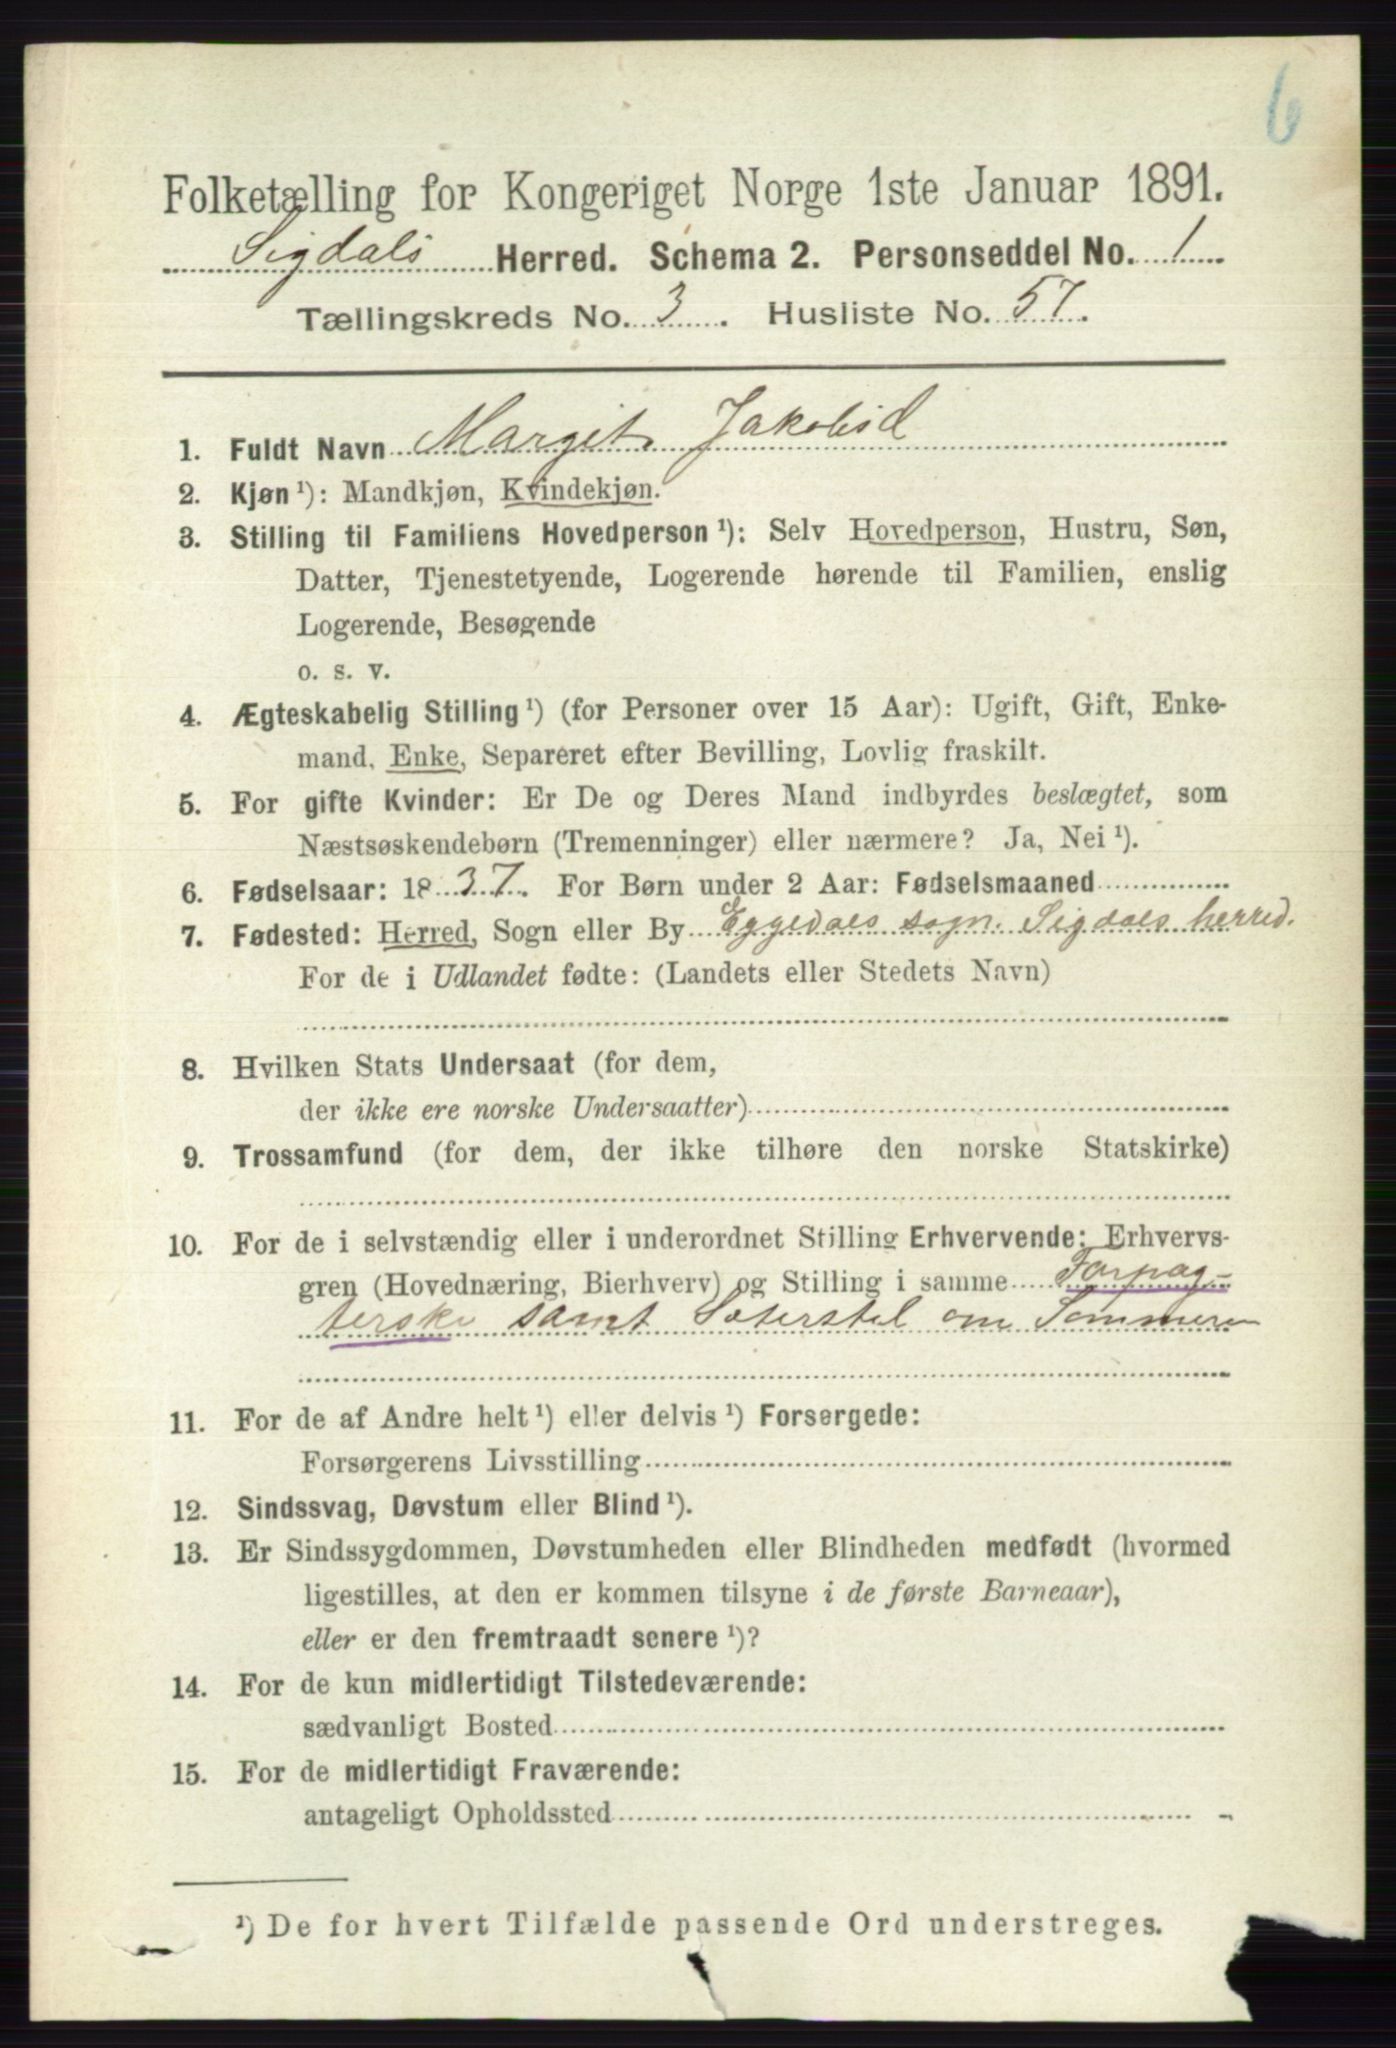 6
Folketælling for Kongeriget Norge 1ste Januar 1891.
Sigdals Herred. Schema 2. Personseddel No. 1
Tællingskreds No. 3. Husliste No. 57.
1. Fuldt Navn Margit Jakobsd
2. Kjøn¹): Mandkjøn, Kvindekjøn.
3. Stilling til Familiens Hovedperson¹): Selv Hovedperson, Hustru, Søn,
Datter, Tjenestetyende, Logerende hørende til Familien, enslig
Logerende, Besøgende
o. s. v.
4. Ægteskabelig Stilling¹) (for Personer over 15 Aar): Ugift, Gift, Enke-
mand, Enke, Separeret efter Bevilling, Lovlig fraskilt.
5. For gifte Kvinder: Er De og Deres Mand indbyrdes beslægtet, som
Næstsøskendebørn (Tremenninger) eller nærmere? Ja, Nei¹).
6. Fødselsaar: 1837. For Børn under 2 Aar: Fødselsmaaned
7. Fødested: Herred, Sogn eller By Eggedals sogn. Sigdals herred.
For de i Udlandet fødte: (Landets eller Stedets Navn)
8. Hvilken Stats Undersaat (for dem,
der ikke ere norske Undersaatter)
9. Trossamfund (for dem, der ikke tilhøre den norske Statskirke)
10. For de i selvstændig eller i underordnet Stilling Erhvervende: Erhvervs-
gren (Hovednæring, Bierhverv) og Stilling i samme Forpag-
terske samt Sæterstel om Sommeren
11. For de af Andre helt¹) eller delvis¹) Forsørgede:
Forsørgerens Livsstilling
12. Sindssvag, Døvstum eller Blind¹).
13. Er Sindssygdommen, Døvstumheden eller Blindheden medfødt (hvormed
ligestilles, at den er kommen tilsyne i de første Barneaar),
eller er den fremtraadt senere¹)?
14. For de kun midlertidigt Tilstedeværende:
sædvanligt Bosted
15. For de midlertidigt Fraværende:
antageligt Opholdssted
¹) De for hvert Tilfælde passende Ord understreges.